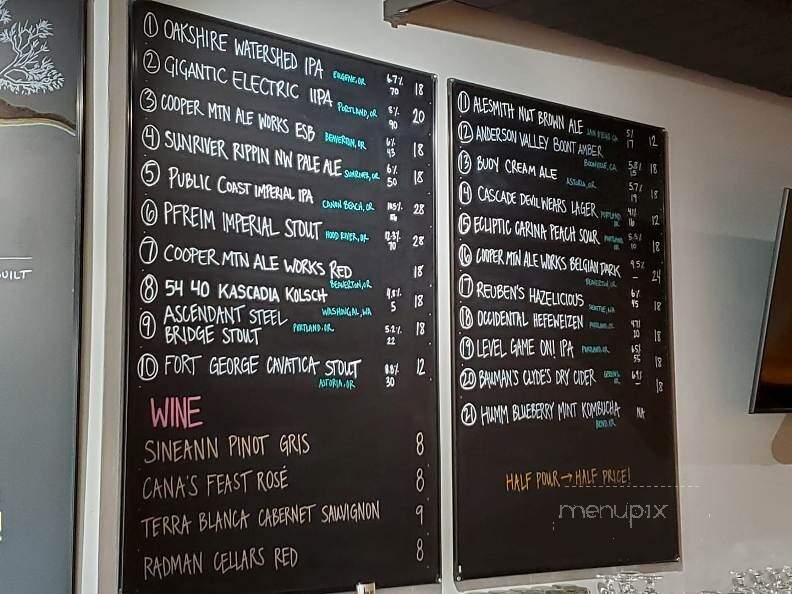 ① OAKSHIRE WATERSHED IPA EUGENE, OR 6.7% 70 18
② GIGANTIC ELECTRIC IIPA PORTLAND, OR 8% 90 20
③ COOPER MTN ALE WORKS ESB BEAVERTON, OR 6% 43 18
④ SUNRIVER RIPPIN NW PALE ALE SUNRIVER, OR 6% 50 18
⑤ PUBLIC COAST IMPERIAL IPA CANON BEACH, OR 10.5% 28
⑥ PFREIM IMPERIAL STOUT HOOD RIVER, OR 12.3% 70 28
⑦ COOPER MTN ALE WORKS RED BEAVERTON, OR 18
⑧ 54 40 KASCADIA KOLSCH WASHINGAL, WA 4.8% 5 18
⑨ ASCENDANT STEEL
BRIDGE STOUT PORTLAND, OR 5.2% 22 18
⑩ FORT GEORGE CAVATICA STOUT ASTORIA, OR 8.8% 30 12
WINE
SINEANN PINOT GRIS 8
CANA'S FEAST ROSÉ 8
TERRA BLANCA CABERNET SAUVIGNON 9
RADMAN CELLARS RED 8
⑪ ALESMITH NUT BROWN ALE 5% 17 12
⑫ ANDERSON VALLEY BOONT AMBER BOONVILLE, CA 5.8% 15 18
⑬ BUOY CREAM ALE ASTORIA, OR 5.7% 19 18
⑭ CASCADE DEVIL WEARS LAGER PORTLAND, OR 16 12
⑮ ECLIPTIC CARINA PEACH SOUR PORTLAND, OR 5.5% 10 18
⑯ COOPER MTN ALE WORKS BELGIAN DARK BEAVERTON, OR 9.5% — 24
⑰ REUBEN'S HAZELICIOUS SEATTLE, WA 6% 45 18
⑱ OCCIDENTAL HEFEWEIZEN PORTLAND, OR 18
⑲ LEVEL GAME ON! IPA PORTLAND, OR 55 18
⑳ BAUMAN'S CLYDE'S DRY CIDER 18
㉑ HUMM BLUEBERRY MINT KOMBUCHA BEND, OR NA
HALF POUR → HALF PRICE!
menupix
UILT